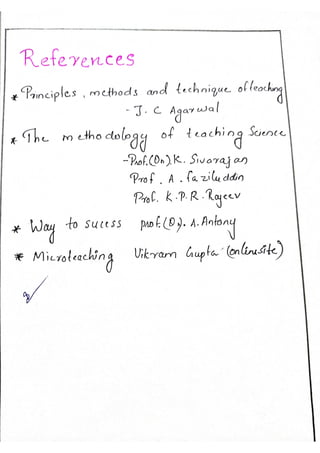 References
* Principles, methods and technique of teaching
- J. C Agarwal
* The methodology of teaching Science
- Prof.(Dr). K. Sivarajan
Prof. A. faziluddin
Prof. K. P. R. Rajeev
* Way to sucess prof.(Dr). A. Antony
* Microteaching Vikram Gupta (onlinesite)